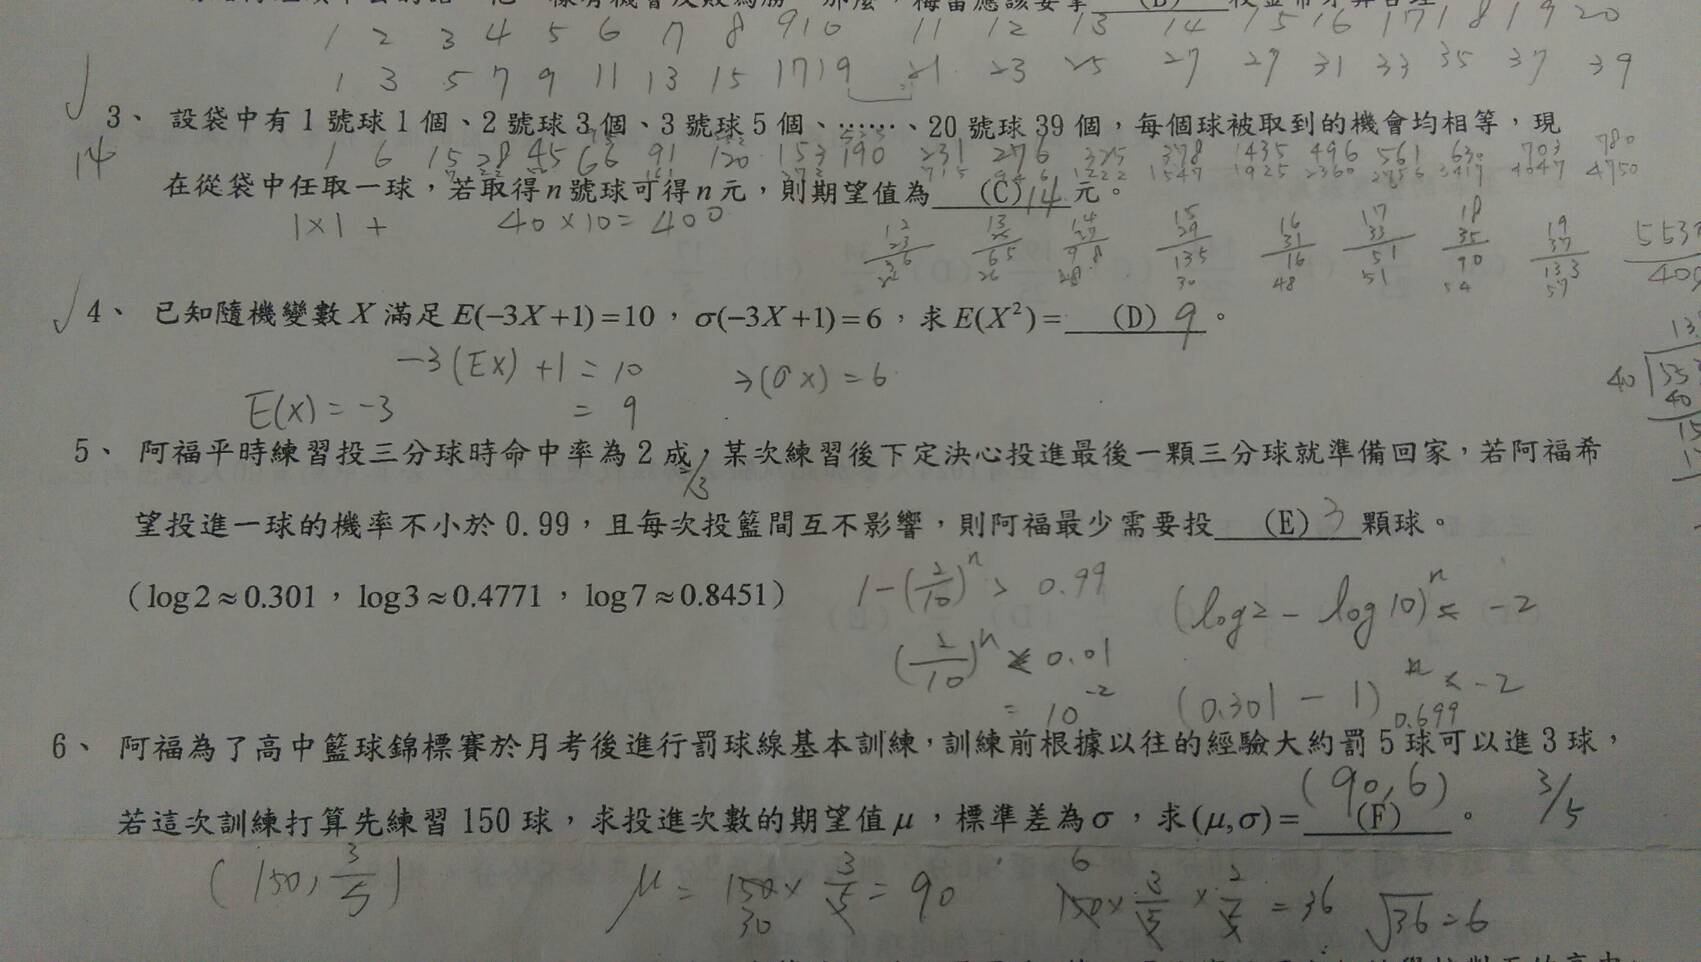 1 2 3 4 5 6 7 8 9 10 11 12 13 14 15 16 17 18 19 20
1 3 5 7 9 11 13 15 17 19 21 23 25 27 29 31 33 35 37 39
3、 設袋中有1號球1個、2號球3個、3號球5個、……、20號球39個，每個球被取到的機會均相等，現
14 1 6 15 28 45 66 91 120 153 190 231 276 325 378 435 496 561 630 703 780
在從袋中任取一球，若取得n號球可得n元，則期望值為 (C) 14 元。
1×1 + 40×10=400
4、 已知隨機變數X滿足E(−3X+1)=10，σ(−3X+1)=6，求E(X²)= (D) 9 。
−3(EX) +1 = 10
→(σx) = 6
E(X) = −3 = 9
5、 阿福平時練習投三分球時命中率為2成，某次練習後下定決心投進最後一顆三分球就準備回家，若阿福希
望投進一球的機率不小於0.99，且每次投籃間互不影響，則阿福最少需要投 (E) 3 顆球。
（log2≈0.301，log3≈0.4771，log7≈0.8451）
1−(2/10)ⁿ > 0.99
(log2 − log10)ⁿ < −2
(2/10)ⁿ < 0.01
= 10⁻²
(0.301 − 1)ⁿ < −2
0.699
6、 阿福為了高中籃球錦標賽於月考後進行罰球線基本訓練，訓練前根據以往的經驗大約罰5球可以進3球，
(90,6) 3/5
若這次訓練打算先練習150球，求投進次數的期望值μ，標準差為σ，求(μ,σ)= (F) 。
(150, 3/5) μ = 150 × 3/5 = 90
30
6
150 × 3/5 × 2/5 = 36 √36 = 6